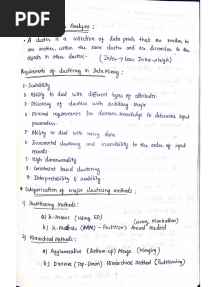 PDF
Analysis :
• A cluster is a collection of data points that are similar to
one another, within the same cluster and are dissimilar to the
objects in other clusters. (Inter → Low Intra → high)
Requirements of clustering in Data Mining :
1- Scalability
2- Ability to deal with different types of attributes
3- Discovery of clusters with arbitrary shape
4- Minimal requirements for domain knowledge to determine input
parameters
5- Ability to deal with noisy data
6- Incremental clustering and insensitivity to the order of input
records
7- High dimensionality
8- Constraint based clustering
9- Interpretability & usability
* Categorization of major clustering methods :
1) Partitioning Methods :
a) K-Means (Using ED) (using Manhattan)
b) K-Medoids (PAM) - Partition Around Medoid
2) Hierarchical Methods :
a) Agglomerative (Bottom-up) Merge (Merging)
b) Divisive (Top-Down) Hierarchical Method (Partitioning)